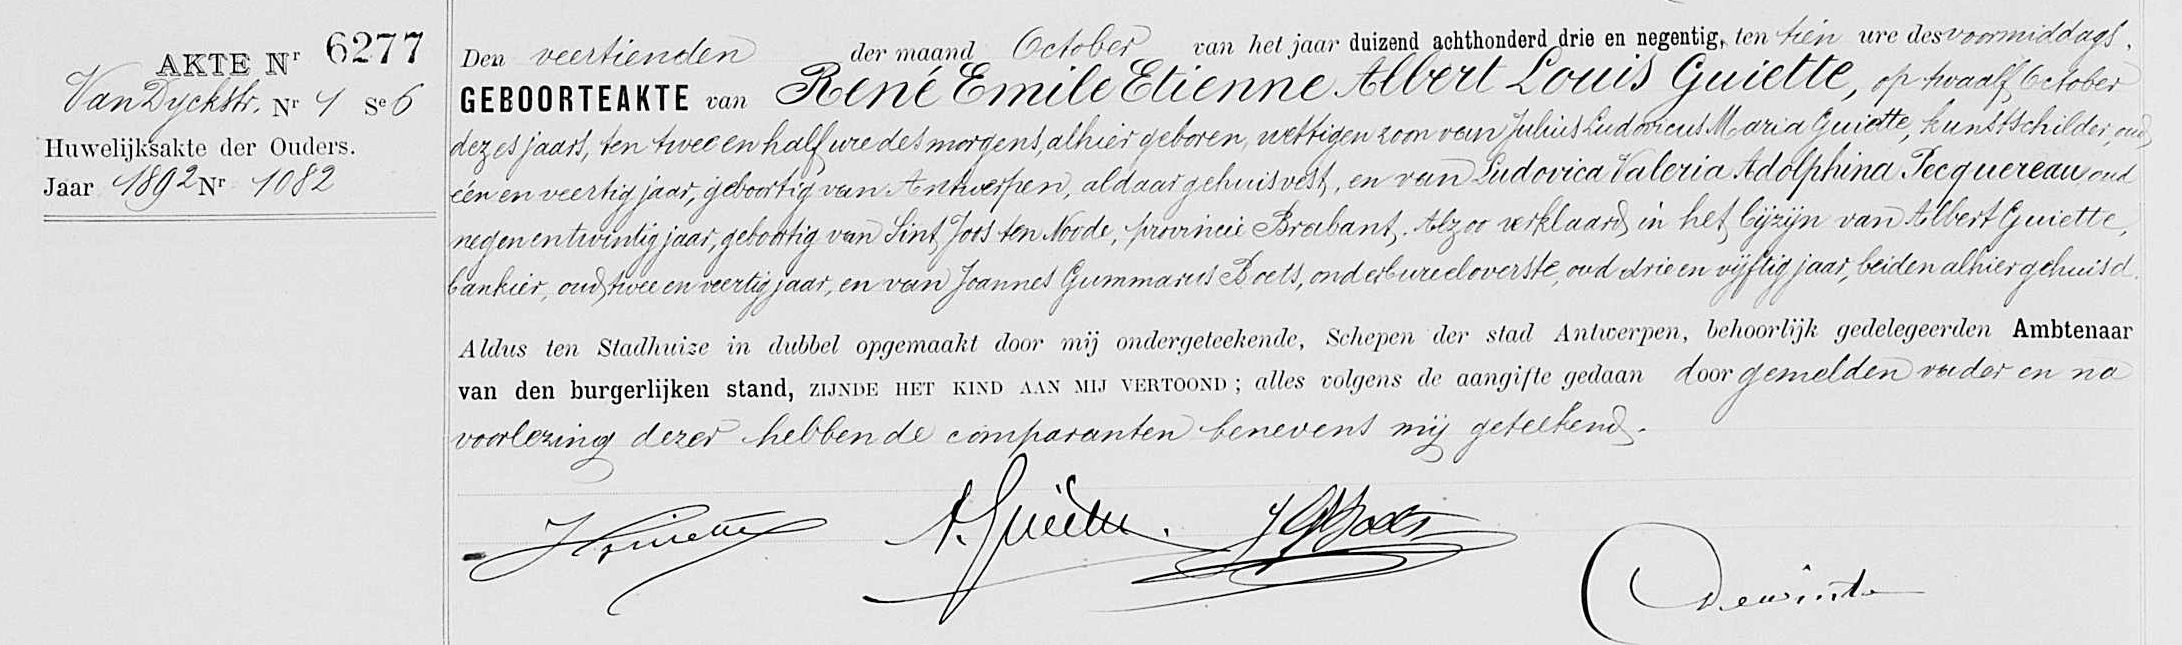 AKTE Nr 6277
Van Dyckstr. Nr 4 Se 6
Huwelijksakte der Ouders.
Jaar 1892 Nr 1082
Den veertienden der maand October van het jaar duizend achthonderd drie en negentig, ten tien ure des voormiddags,
GEBOORTEAKTE van René Emile Etienne Albert Louis Guiette, op twaalf October
dezes jaars, ten twee en half ure des morgens, alhier geboren, wettigen zoon van Julius Ludovicus Maria Guiette, kunstschilder, oud
één en veertig jaar, geboortig van Antwerpen, aldaar gehuisvest, en van Ludovica Valeria Adolphina Pecquereau, oud
negen en twintig jaar, geboortig van Sint Joos ten Noode, provincie Brabant. Alzoo verklaard in het bijzijn van Albert Guiette,
bankier, oud twee en veertig jaar, en van Joannes Gummarus Boets, onderbureeloverste, oud drie en vijftig jaar, beiden alhier gehuisd.
Aldus ten Stadhuize in dubbel opgemaakt door mij ondergeteekende, Schepen der stad Antwerpen, behoorlijk gedelegeerden Ambtenaar
van den burgerlijken stand, ZIJNDE HET KIND AAN MIJ VERTOOND; alles volgens de aangifte gedaan door gemelden vader en na
voorlezing dezer hebben de comparanten benevens mij geteekend.
J Guiette A. Guiette. J G Boets